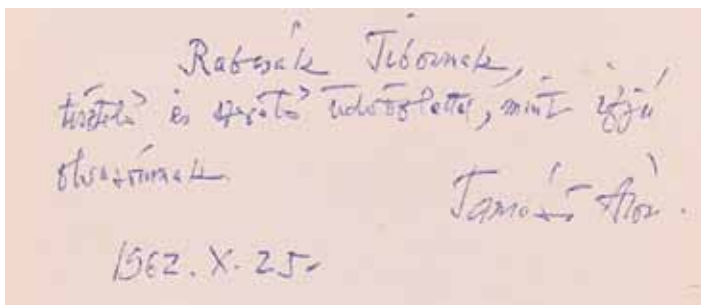 Rabcsák Tibornak,
tisztelő és szerető üdvözlettel, mint ifjú
olvasómnak
Tamási Áron.
1962. X. 25.